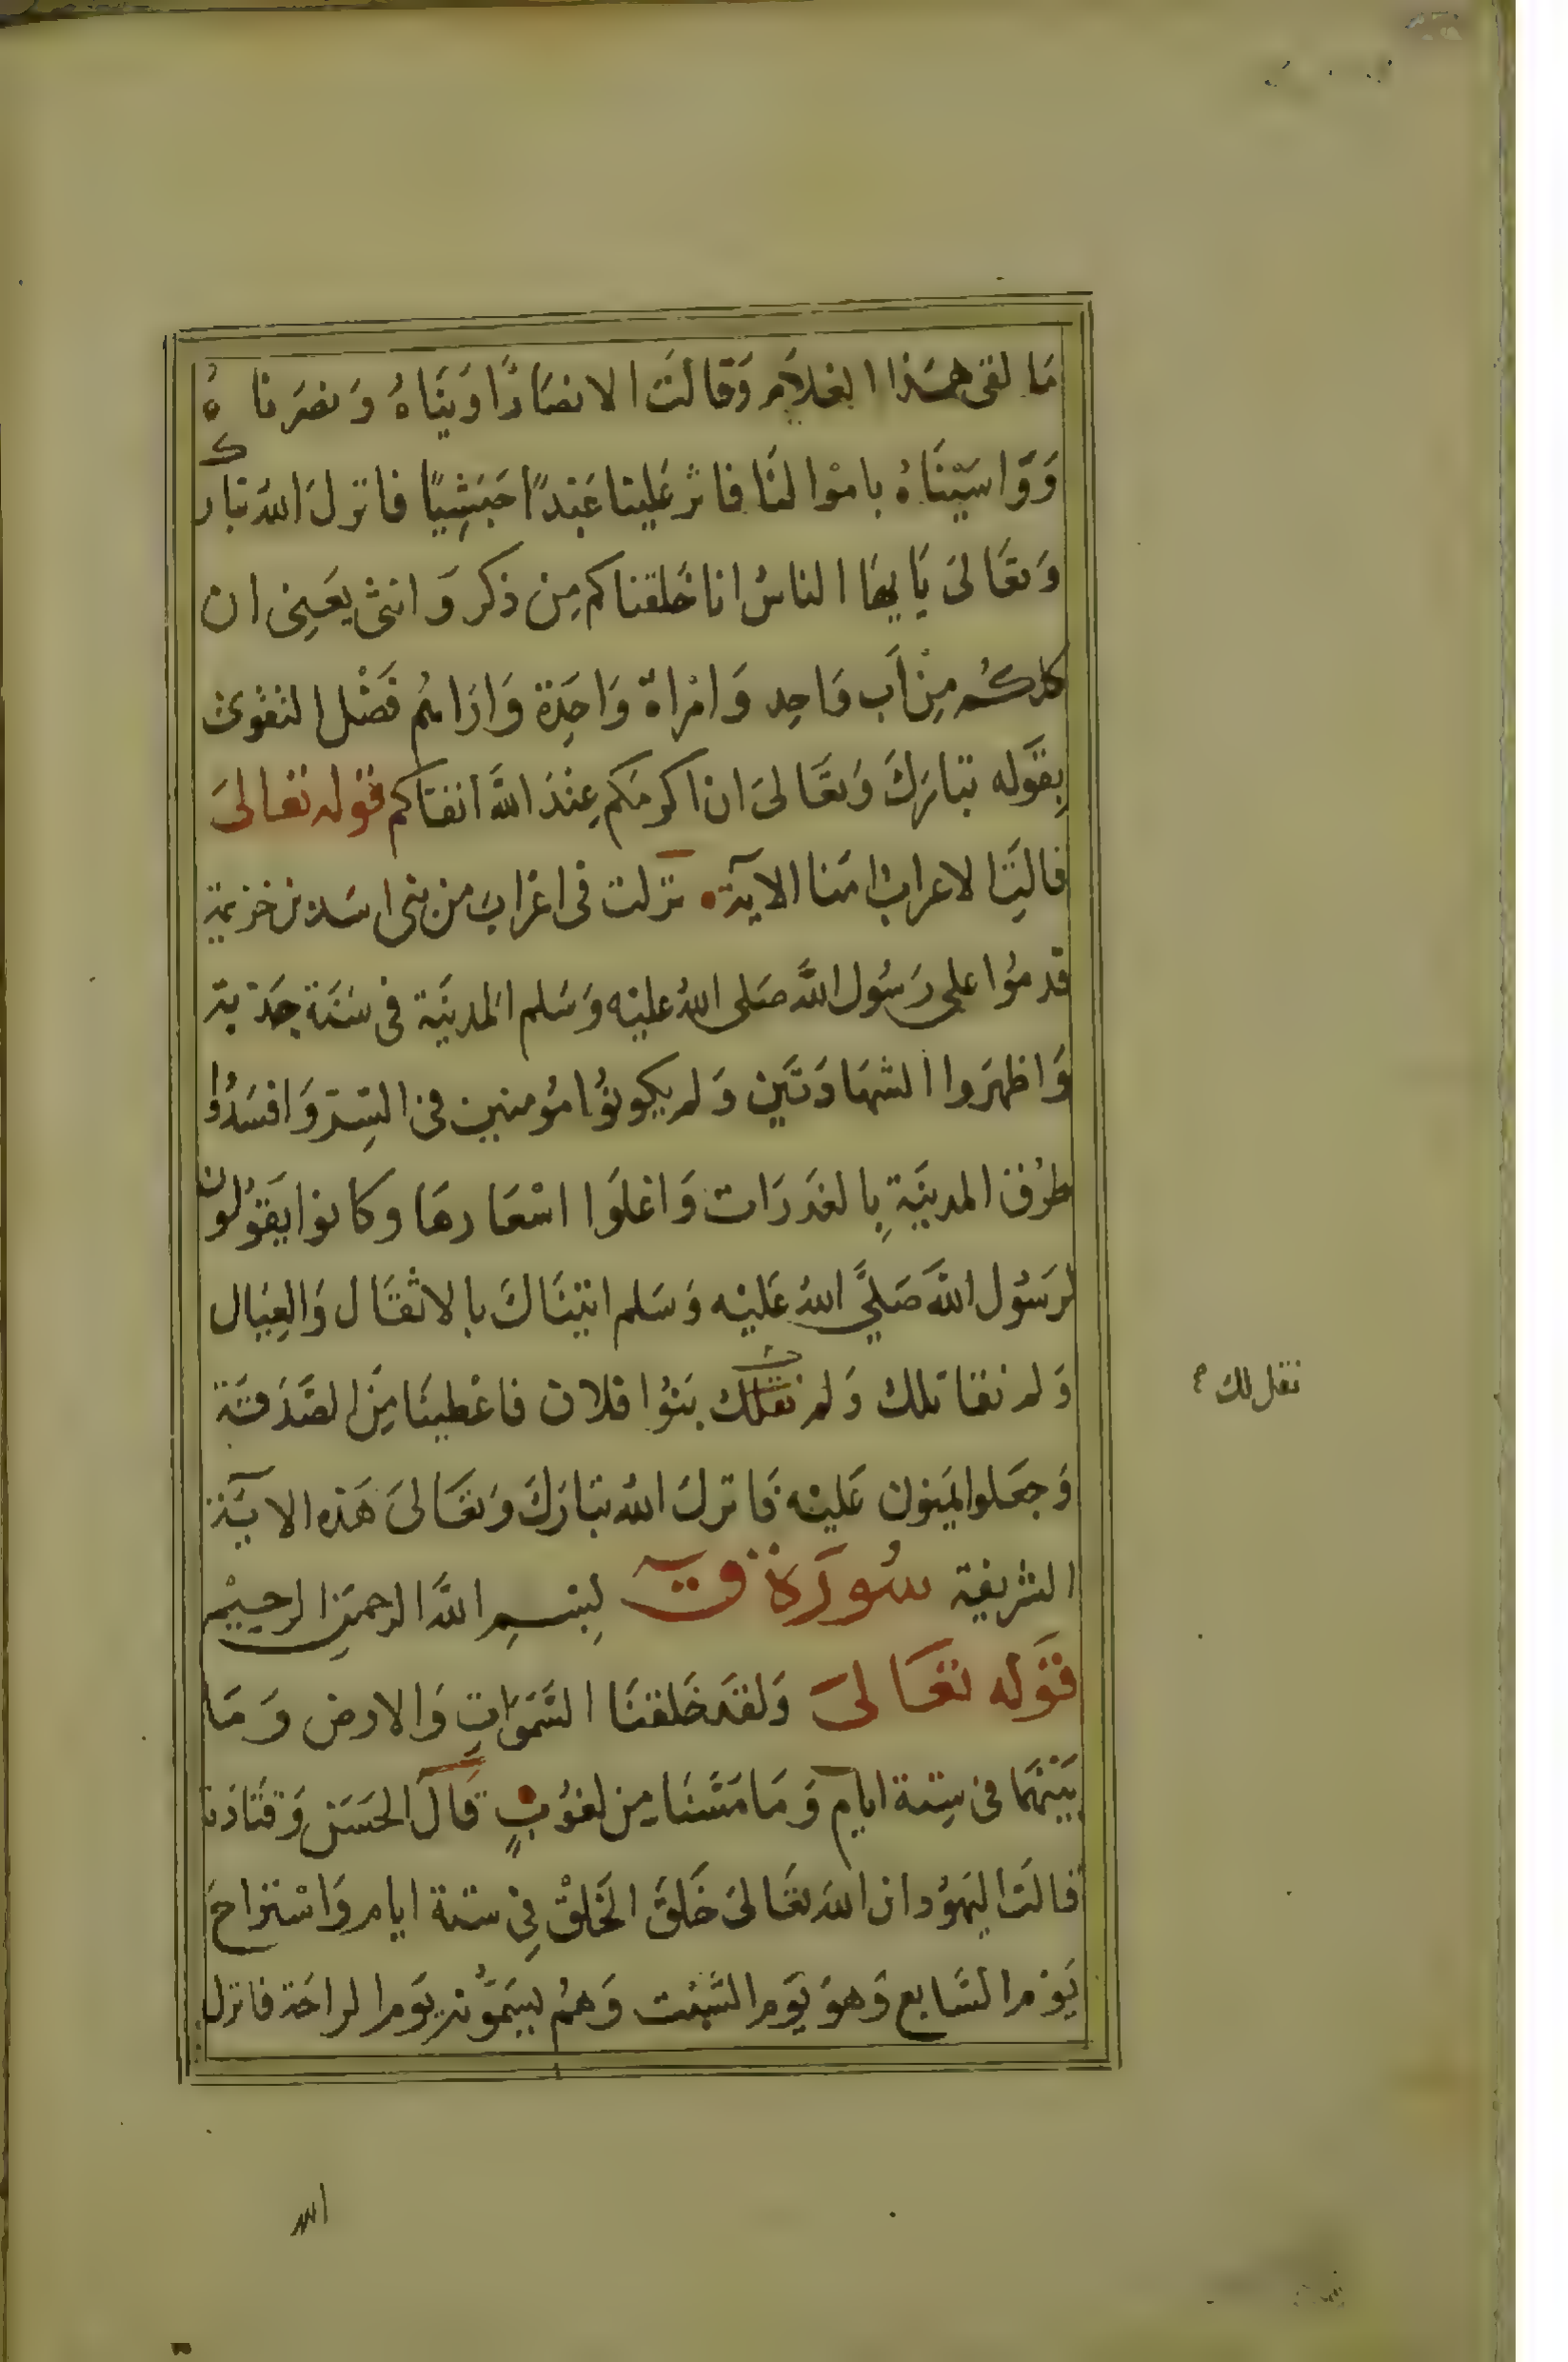 مَا لقى هـَذا الغلاَم وَقالَت الانصَارُ اوَينَاهُ وَنصَرناهُ
وَوَاسَيْنَاهُ بامْوالنَا فاثر عَلينا عَبْدًا حَبَشِيًا فانزلَ اللهُ تبارك
وَتعَالىَ يَايهَا الناسُ انا خَلقناكم مِن ذكر وَانثى يَعنِى ان
كلكُـم مِنْ اَب وَاحِد وَامْراة وَاحِدَة وَارَاهُم فَضْل التقْوىَ
بِقوَله تبَارَكَ وَتعَالىَ ان اكرمَكم عِنْدَ اللهَ اتقاكم قوله تعالىَ
قالَتِ الاعراب امَنا الآية نزلت فى اعْرابَ من بنى اسَد بن خزيمة
قدمُوا على رَسُول اللهَ صَلى اللهُ عليْه وَسَلم المَدينَة فى سَنَة جَدبة
وَاظهَروا الشهَادَتَين وَلم يكونوُا مُومنين فى السِتر وَافسَدُوا
طرُق المدينَة بِالغدَرَات وَاغلَوا اسْعَارهَا وكانوا يَقوُلون
لرَسُول اللهَ صَلىَّ اللهُ عَليْه وَسَلم اتيْنَاكَ بالاثقَال وَالعِيَال
وَلم نقاتلك وَلم نقلك بَنوُا فلان فاعْطينَا مِنَ الصَّدَقَة
نقل لك
وَجعَلوا يمَنون عَليْه فَانزلَ اللهُ تبَارَكَ وَتعَالىَ هَذه الايَة
الشريفة سُورَة ق بِسْـمِ اللهَ الرحمَنِ الرحِيْم
قوَله تعَالىَ وَلقدَ خَلقنَا السَّمَوَاتِ وَالارض وَمَا
بَيْنهمَا فى سِتة ايام وَمَا مَسَّنَا مِن لغوُبٍ قَالَ الحَسَن وَقتَادَة
قالَت اليَهوُد ان اللهَ تعَالىَ خَلقَ الخَلْق فِى ستة ايام وَاسْتراحَ
يَوْم السَّابع وَهوَ يَوم السَّبْت وَهمُ يسَمَّونه يَوم الراحَة فانزل
الله